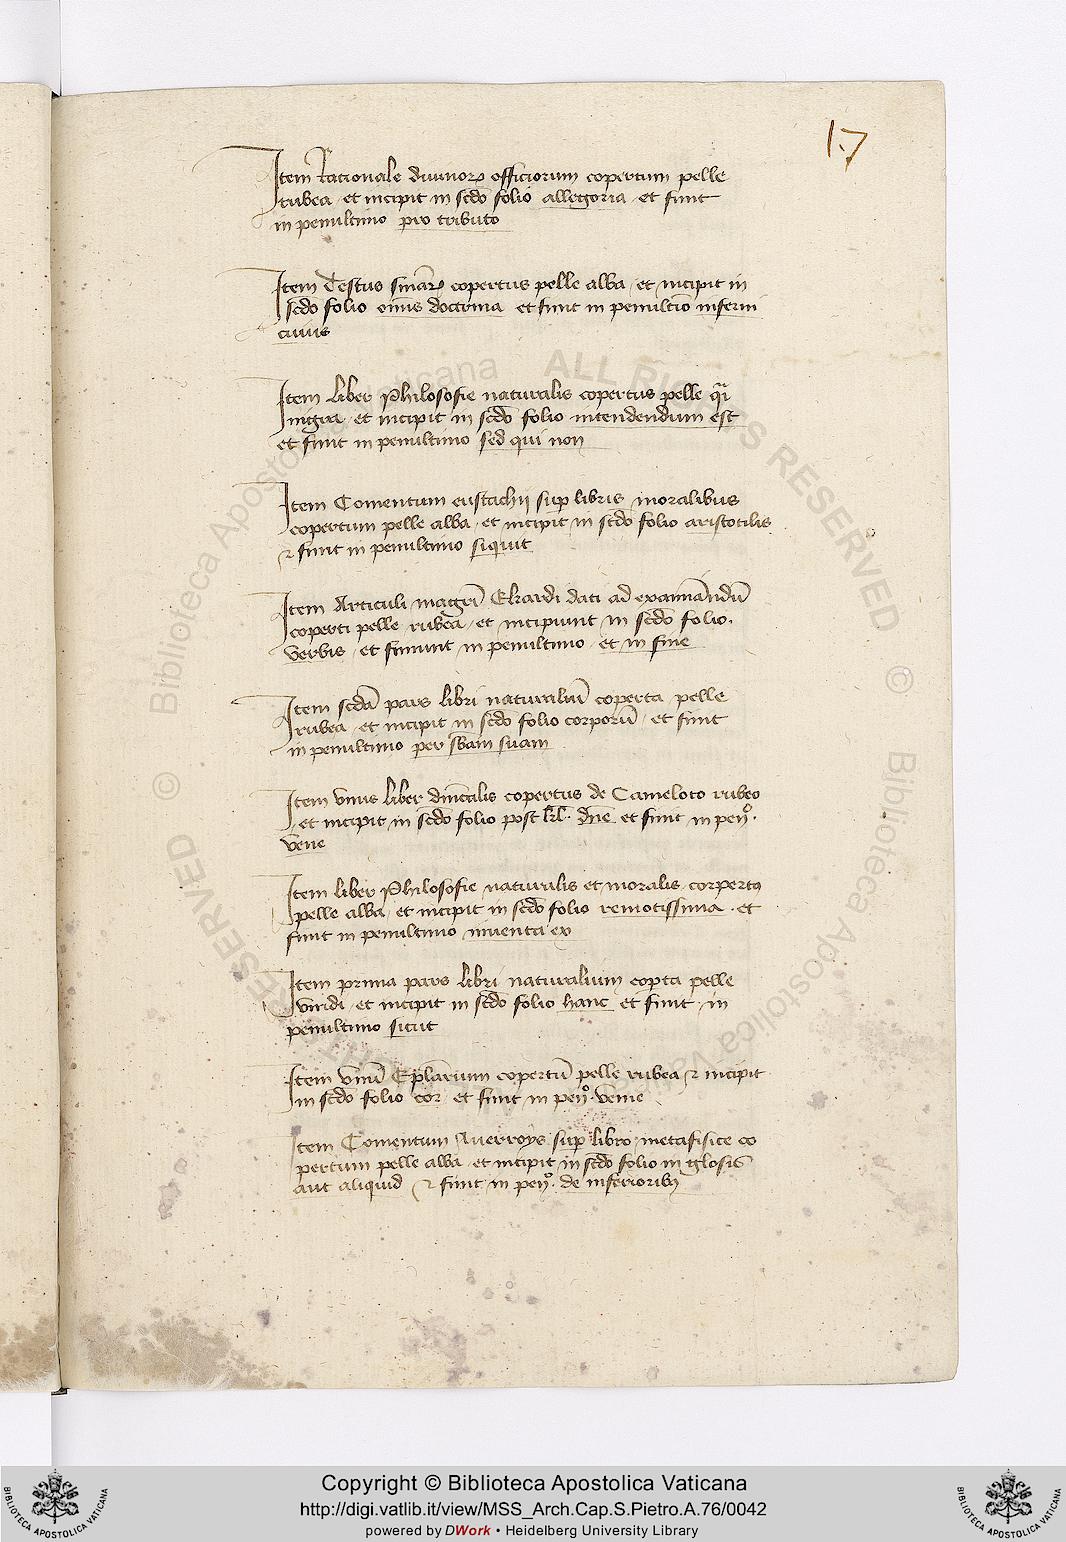 17
Item Racionale diuinoꝝ officiorum copertum pelle
rubea et incipit in scd̄o folio allegoria et finit
in penultimo pro tributo
Item Testus sūiaꝝ copertus pelle alba et incipit in
scd̄o folio om̄is doctrina et finit in penultīo inferni
cuius
Item liber Philosofie naturalis copertus pelle q̄i
nigra et incipit in scd̄o folio intendendum est
et finit in penultimo sed qui non
Item Comentum eustachij sup̱ libris moralibus
copertum pelle alba et incipit in scd̄o folio aristotilis
⁊ finit in penultimo siquit
Item Articuli magr̄i Ekardi dati ad examīandū
coperti pelle rubea et incipiunt in scd̄o folio.
verbis et finiunt in penultimo et in fine
Item scd̄a pars libri naturaliū coperta pelle
rubea et incipit in scd̄o folio corporū et finit
in penultimo per sb̄am suam
Item vnus liber copertus de Cameloto rubeo
et incipit in scd̄o folio post kl̄. dn̄e et finit in pen̊.
vene
Item liber Philosofie naturalis et moralis corpertꝰ
pelle alba et incipit in scd̄o folio remotissima et
finit in penultimo inuenta ex
Item prima pars libri naturalium cop̱ta pelle
viridi et incipit in scd̄o folio hanc et finit in
penultimo sicut
Item vnū Ep̄larium copertū pelle rubea ⁊ incipit
in scd̄o folio cor et finit in pen̊. venie
Item Comentum Auerroys sup̱ libro metafisice co
pertum pelle alba et incipit in scd̄o folio in glosis
aut aliquid ⁊ finit in pen̊. de inferioribꝫ
ALL RIGHTS RESERVED © Biblioteca Apostolica Vaticana
Copyright © Biblioteca Apostolica Vaticana
http://digi.vatlib.it/view/MSS_Arch.Cap.S.Pietro.A.76/0042
powered by DWork • Heidelberg University Library
BIBLIOTECA APOSTOLICA VATICANA
BIBLIOTECA APOSTOLICA VATICANA